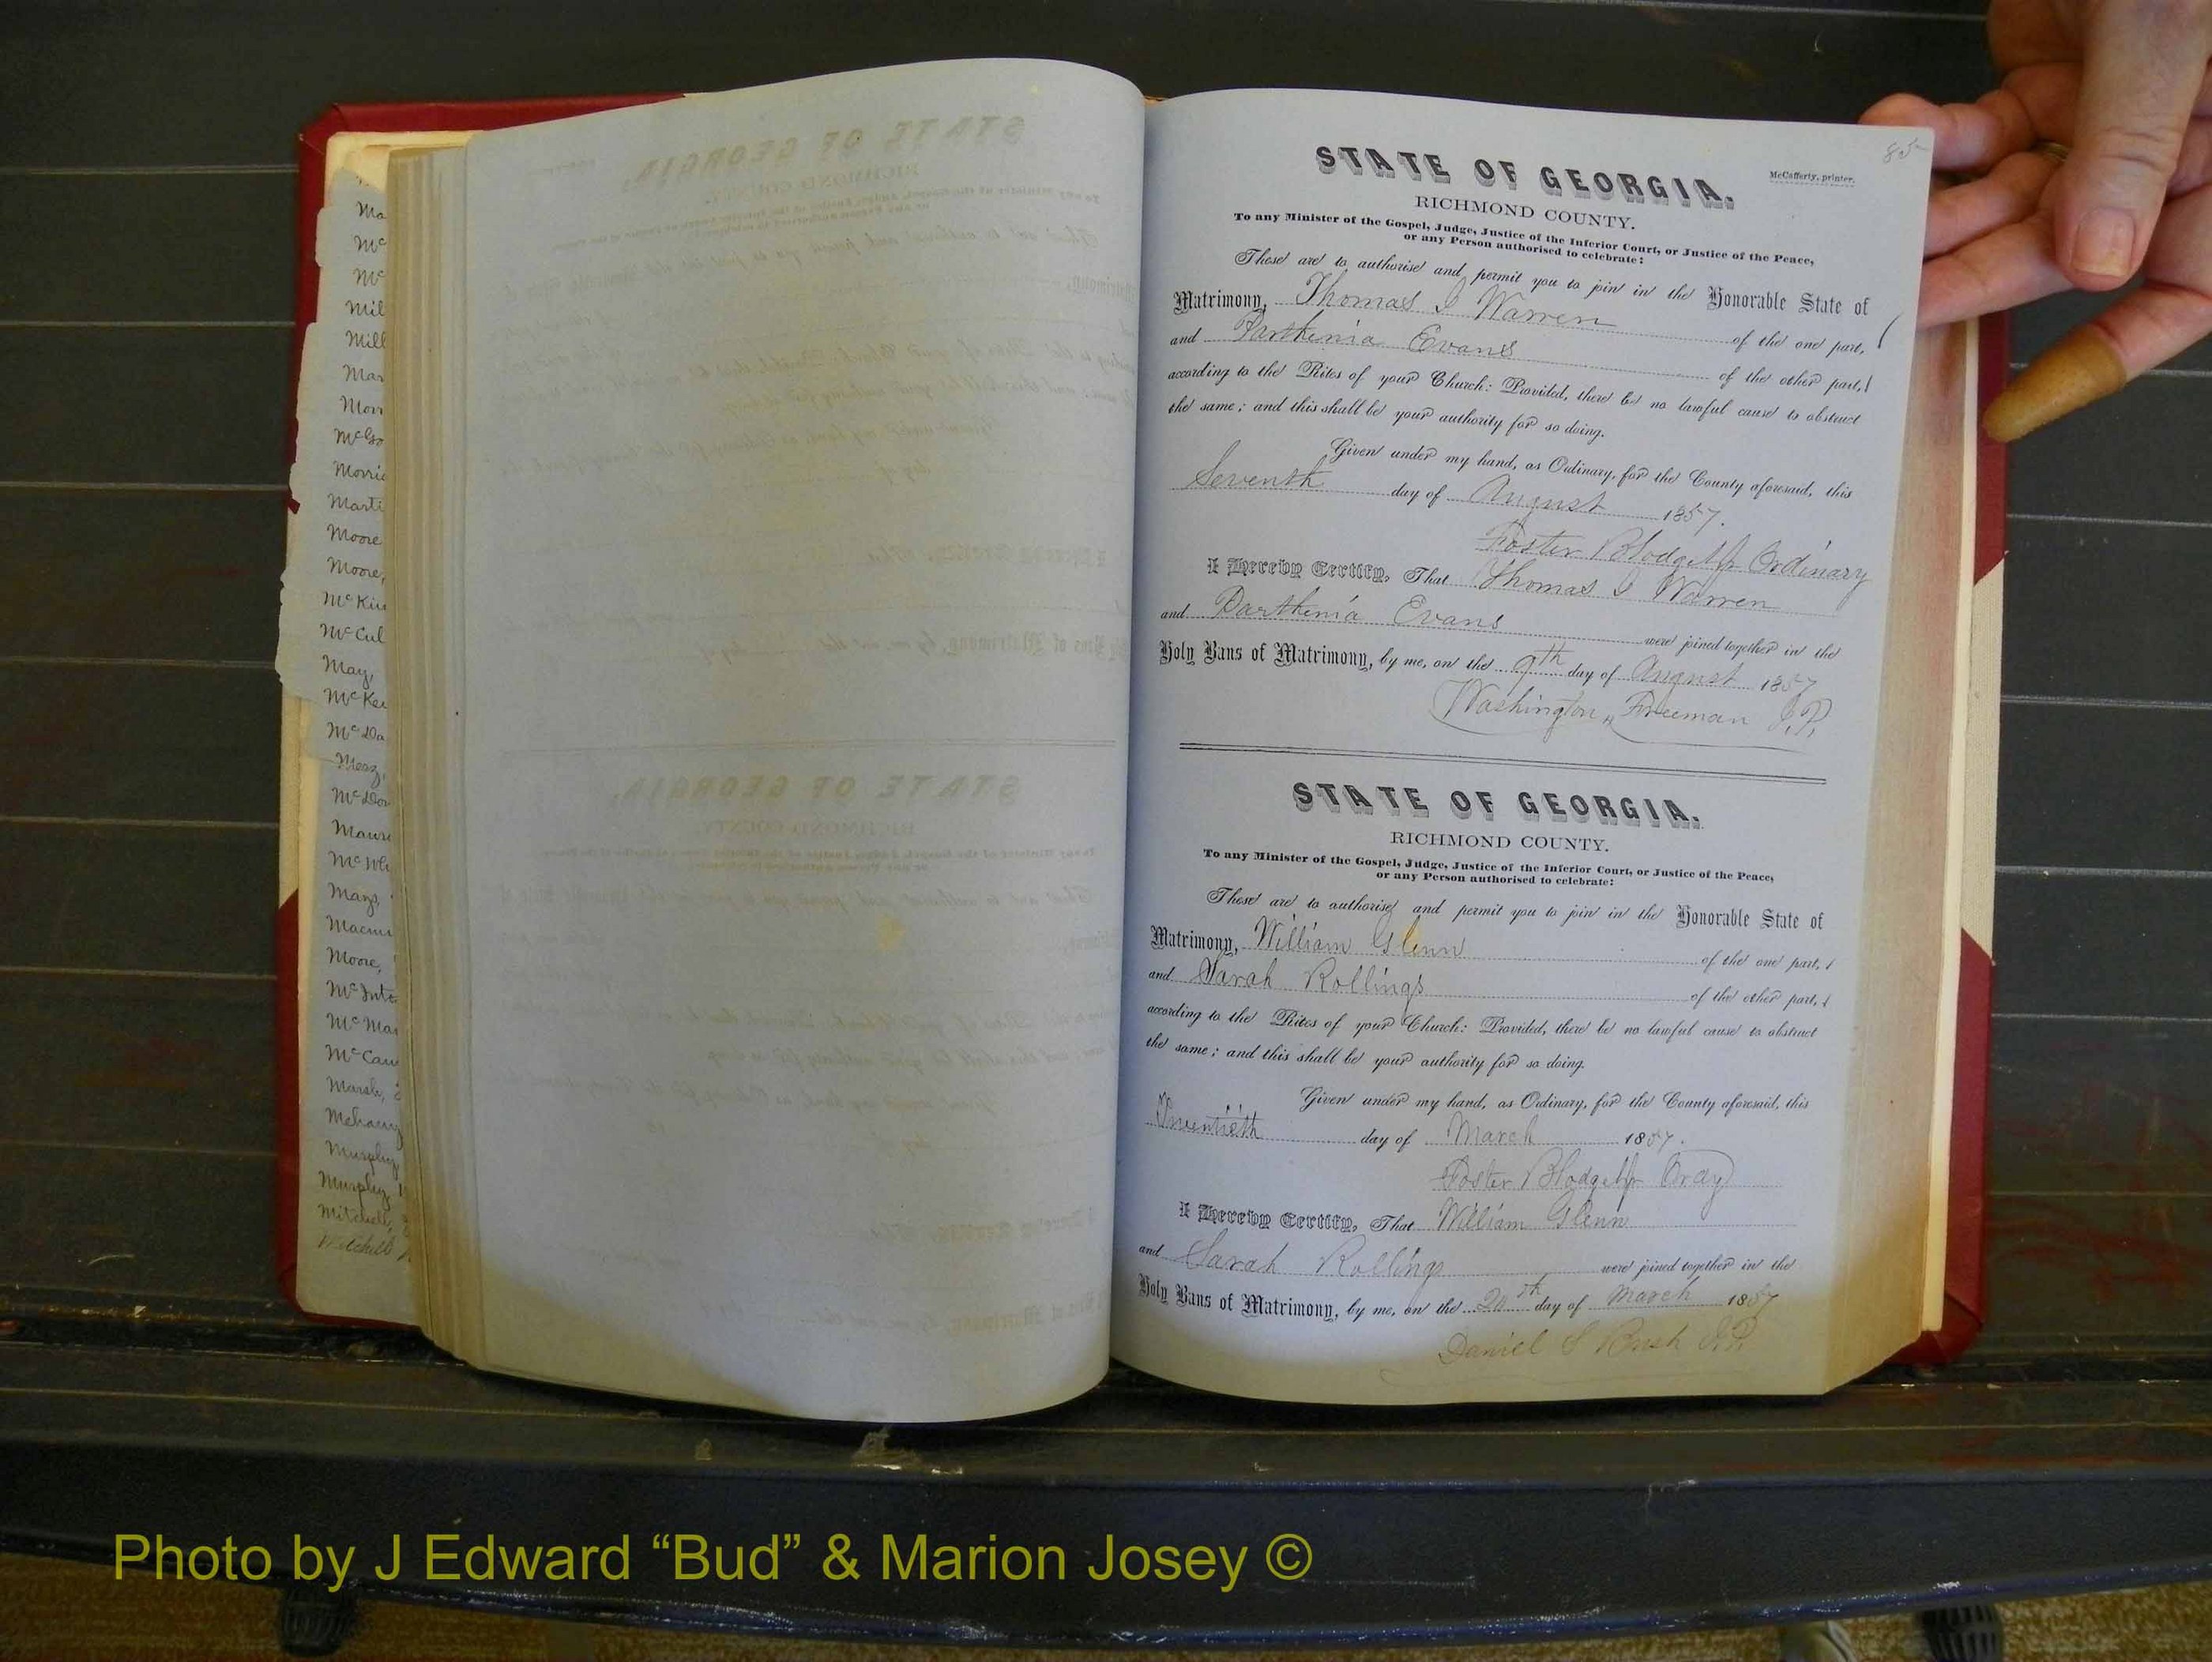 Ma
Mc
Mc
Mil
Mill
Mar
Morr
McGo
Morris
Marti
Moore
Moore,
McKin
McCul
May,
McKe
McDa
Merz,
McDon
Maur
McWh
Mays,
Macmu
Moore,
McInt
McMa
McCau
Marsh,
Mehany
Murphy
Murphy,
Mitchell,
Mitchell
85
STATE OF GEORGIA.
McCafferty, printer.
RICHMOND COUNTY.
To any Minister of the Gospel, Judge, Justice of the Inferior Court, or Justice of the Peace,
or any Person authorised to celebrate:
These are to authorise and permit you to join in the Honorable State of
Matrimony, Thomas J Warren of the one part,
and Parthenia Evans of the other part,
according to the Rites of your Church: Provided, there be no lawful cause to obstruct
the same; and this shall be your authority for so doing.
Given under my hand, as Ordinary, for the County aforesaid, this
Seventh day of August 1857.
Foster Blodget Jr Ordinary
I Hereby Certify, That Thomas J Warren
and Parthenia Evans were joined together in the
Holy Bans of Matrimony, by me, on the 9th day of August 1857
Washington Freeman J.P.
STATE OF GEORGIA.
RICHMOND COUNTY.
To any Minister of the Gospel, Judge, Justice of the Inferior Court, or Justice of the Peace,
or any Person authorised to celebrate:
These are to authorise and permit you to join in the Honorable State of
Matrimony, William Glenn of the one part,
and Sarah Rollings of the other part,
according to the Rites of your Church: Provided, there be no lawful cause to obstruct
the same; and this shall be your authority for so doing.
Given under my hand, as Ordinary, for the County aforesaid, this
Twentieth day of March 1857.
Foster Blodget Jr Ordy
I Hereby Certify, That William Glenn
and Sarah Rollings were joined together in the
Holy Bans of Matrimony, by me, on the 20th day of March 1857
Daniel S Bush J.P.
Photo by J Edward “Bud” & Marion Josey ©